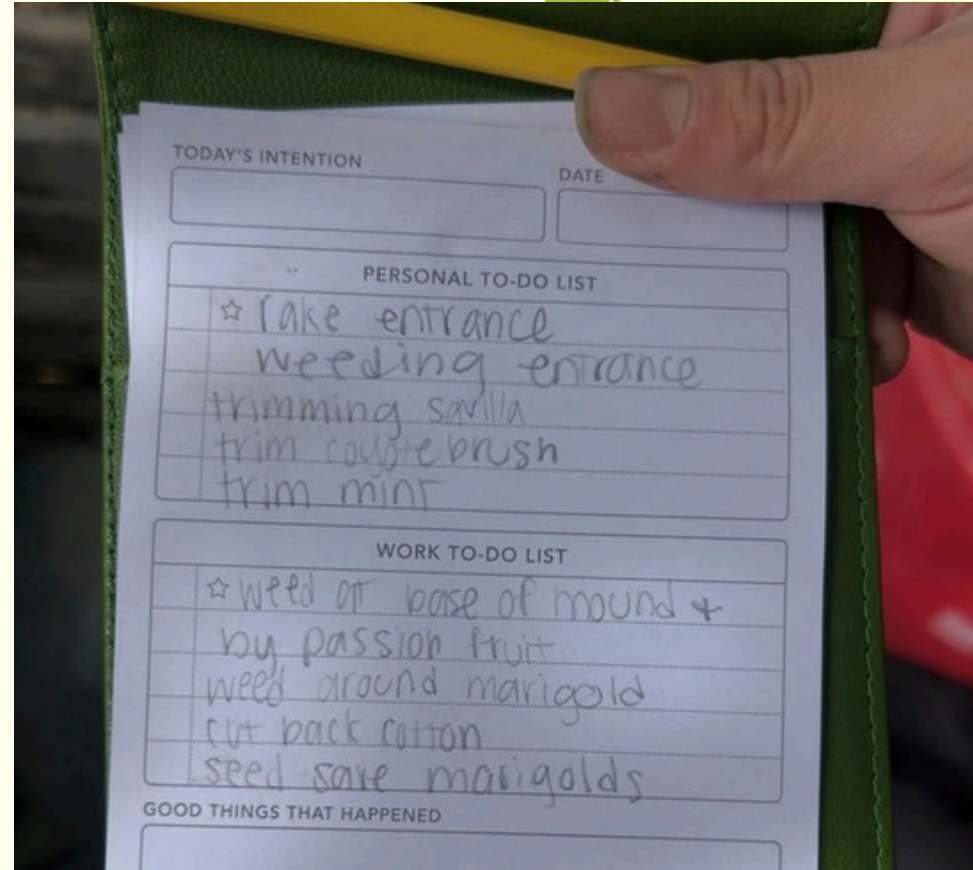 TODAY'S INTENTION
DATE
PERSONAL TO-DO LIST
☆ rake entrance
weeding entrance
trimming savilla
trim coyotebrush
trim mint
WORK TO-DO LIST
☆ weed at base of mound +
by passion fruit
weed around marigold
cut back cotton
seed save marigolds
GOOD THINGS THAT HAPPENED